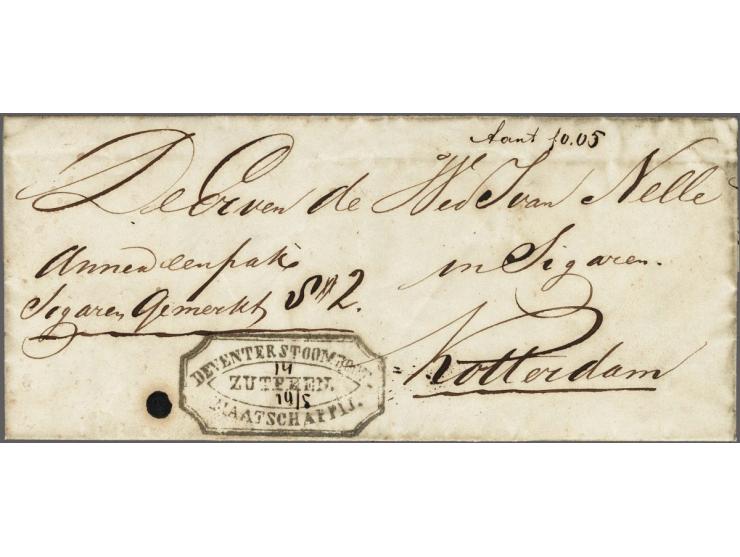 Aant f0.05
De Erven de Wed J van Nelle
in Sigaren.
Annex een pak
Sigaren Gemerkt S # 2.
Rotterdam
DEVENTER STOOMBOOT
14
ZUTFEN.
19/5
MAATSCHAPPIJ.